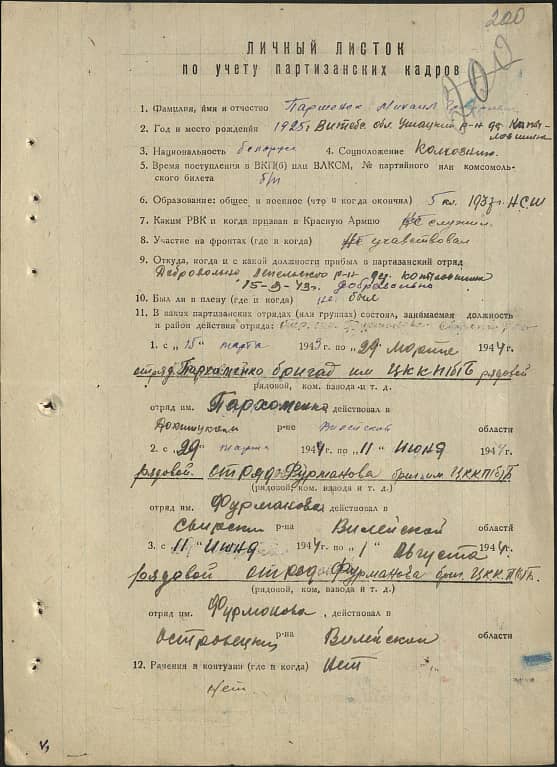 200
200
ЛИЧНЫЙ ЛИСТОК
по учету партизанских кадров
1. Фамилия, имя и отчество Михаил
2. Год и место рождения 1925г Витебс. обл. Ушацкий р-н де.
3. Национальность белорус 4. Соцположение Колхозник
5. Время поступления в ВКП(б) или ВЛКСМ, № партийного или комсомоль-
ского билета б/п
6. Образование: общее и военное (что и когда окончил) 5 кл. 1937г НСШ
7. Каким РВК и когда призван в Красную Армию Не служил
8. Участие на фронтах (где и когда) Не учавствовал
9. Откуда, когда и с какой должности прибыл в партизанский отряд
р-н дер.
15-3-43г. добровольно
10. Был ли в плену (где и когда) не был
11. В каких партизанских отрядах (или группах) состоял, занимаемая должность
и район действия отряда:
1. с „15“ марта 1943 г. по „29“ Марта 1944 г.
отряд Пархоменко бригад им ЦККП(б)Б рядовой
(рядовой, ком. взвода и т. д.)
отряд им. Пархоменко действовал в
р-не Вилейской области
2. с „29“ марта 1944 г. по „11“ Июня 1944 г.
рядовой. отряд Фурманова бриг им. ЦККП(б)Б
(рядовой, ком. взвода и т. д.)
отряд им. Фурманова действовал в
Свирски р-на Вилейской области
3. с „11“ Июня 1944 г. по „1“ Августа 1944 г.
рядовой отряд Фурманова бриг. ЦК.КП(б)Б.
(рядовой, ком. взвода и т. д.)
отряд им. Фурмонова, действовал в
Островецки р-на Вилейской области
12. Ранения и контузии (где и когда) Нет
нет